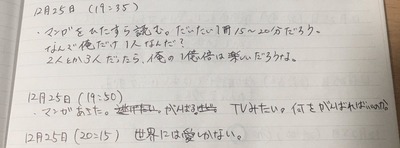 12月25日 (19:35)
・マンガをひたすら読む。だいたい1冊15～20分だろう。
なんで俺だけ1人なんだ?
2人とか3人だったら、俺の1億倍は楽しいだろうな。
12月25日 (19:50)
・マンガあきた。逃げたい。がんばるせい。TVみたい。何をがんばればいいのか
12月25日 (20:15) 世界には愛しかない。